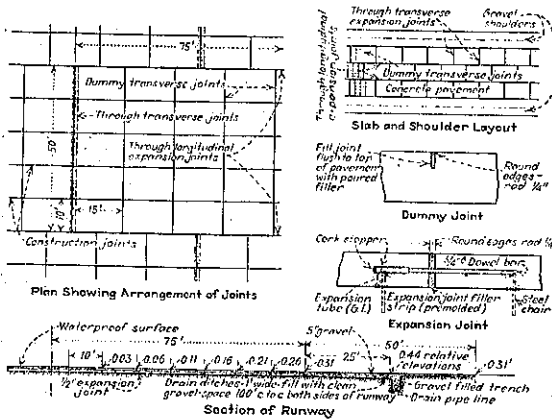 75'
Dummy transverse joints
Through transverse joints
Through longitudinal expansion joints
50'
10'
15'
Construction joints
Plan Showing Arrangement of Joints
Through transverse expansion joints
Gravel shoulders
Through longitudinal expansion joints
Dummy transverse joints
Concrete pavement
Slab and Shoulder Layout
Fill joint
flush to top
of pavement
with poured
filler
Round
edges-
rad ¼"
Dummy Joint
Cork stopper
Round edges rad ¼
¾"ø Dowel bar
Expansion
tube (G.I.)
Expansion joint filler
strip (premolded)
Steel
chair
Expansion Joint
Waterproof surface
75'
5' gravel
50'
10'
0.03
0.06
0.11
0.16
0.21
0.26
0.31
25'
0.44 relative
elevations
0.31'
½" expansion
joint
Drain ditches-1' wide-fill with clean
gravel-space 100' c. to c. both sides of runway
Gravel filled trench
Drain pipe line
Section of Runway